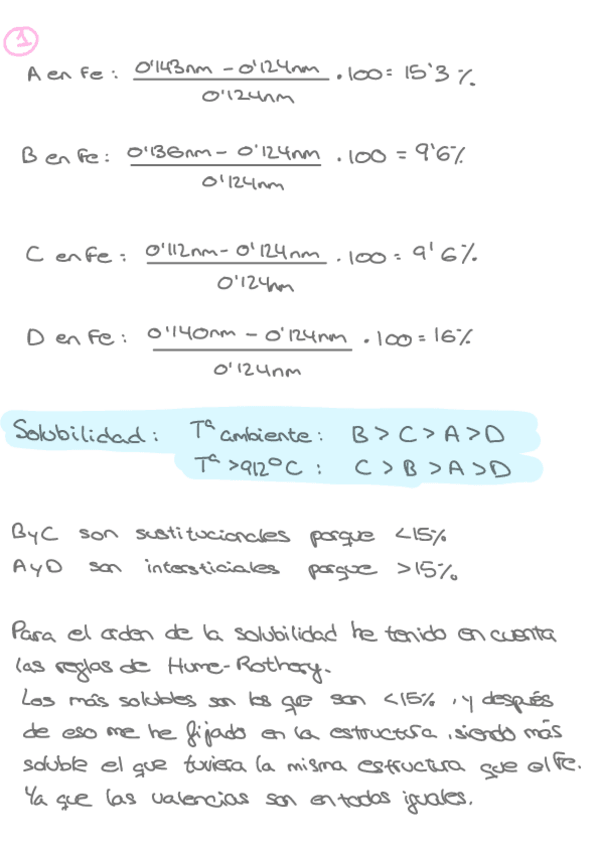 1
A en Fe: (0'143nm - 0'124nm)/(0'124nm) · 100 = 15'3 %
B en Fe: (0'136nm - 0'124nm)/(0'124nm) · 100 = 9'6%
C en Fe: (0'112nm - 0'124nm)/(0'124nm) · 100 = 9'6%
D en Fe: (0'140nm - 0'124nm)/(0'124nm) · 100 = 16%
Solubilidad: Tª ambiente: B > C > A > D
Tª >912°C: C > B > A > D
B y C son sustitucionales porque <15%
A y D son intersticiales porque >15%
Para el orden de la solubilidad he tenido en cuenta
las reglas de Hume-Rothery.
Los más solubles son los que son <15%, y después
de eso me he fijado en la estructura, siendo más
soluble el que tuviera la misma estructura que el Fe.
Ya que las valencias son en todos iguales.